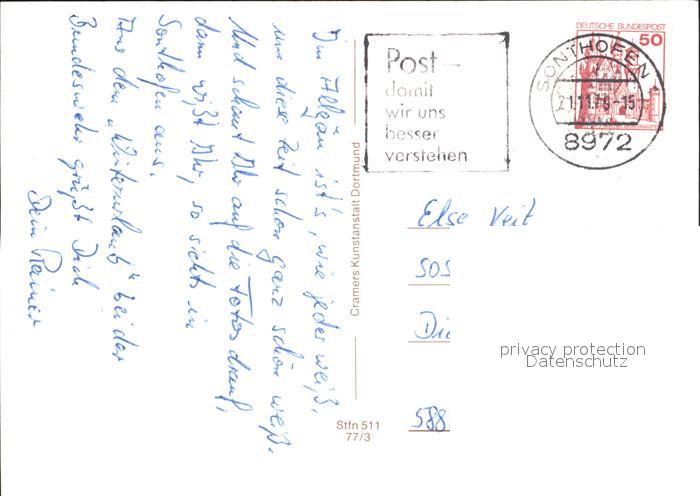 Im Allgäu ist's, wie jeder weiß,
um diese Zeit schon ganz schön weiß.
Und schaut Ihr auf die Fotos drauf,
dann wißt Ihr, so sieht's in
Sonthofen aus.
Aus dem „Winterurlaub" bei der
Bundeswehr grüßt Dich
Dein Rainer
Cramers Kunstanstalt Dortmund
Stfn 511
77/3
Post –
damit
wir uns
besser
verstehen
SONTHOFEN
8972
DEUTSCHE BUNDESPOST
50
Else Veit
588
privacy protection
Datenschutz